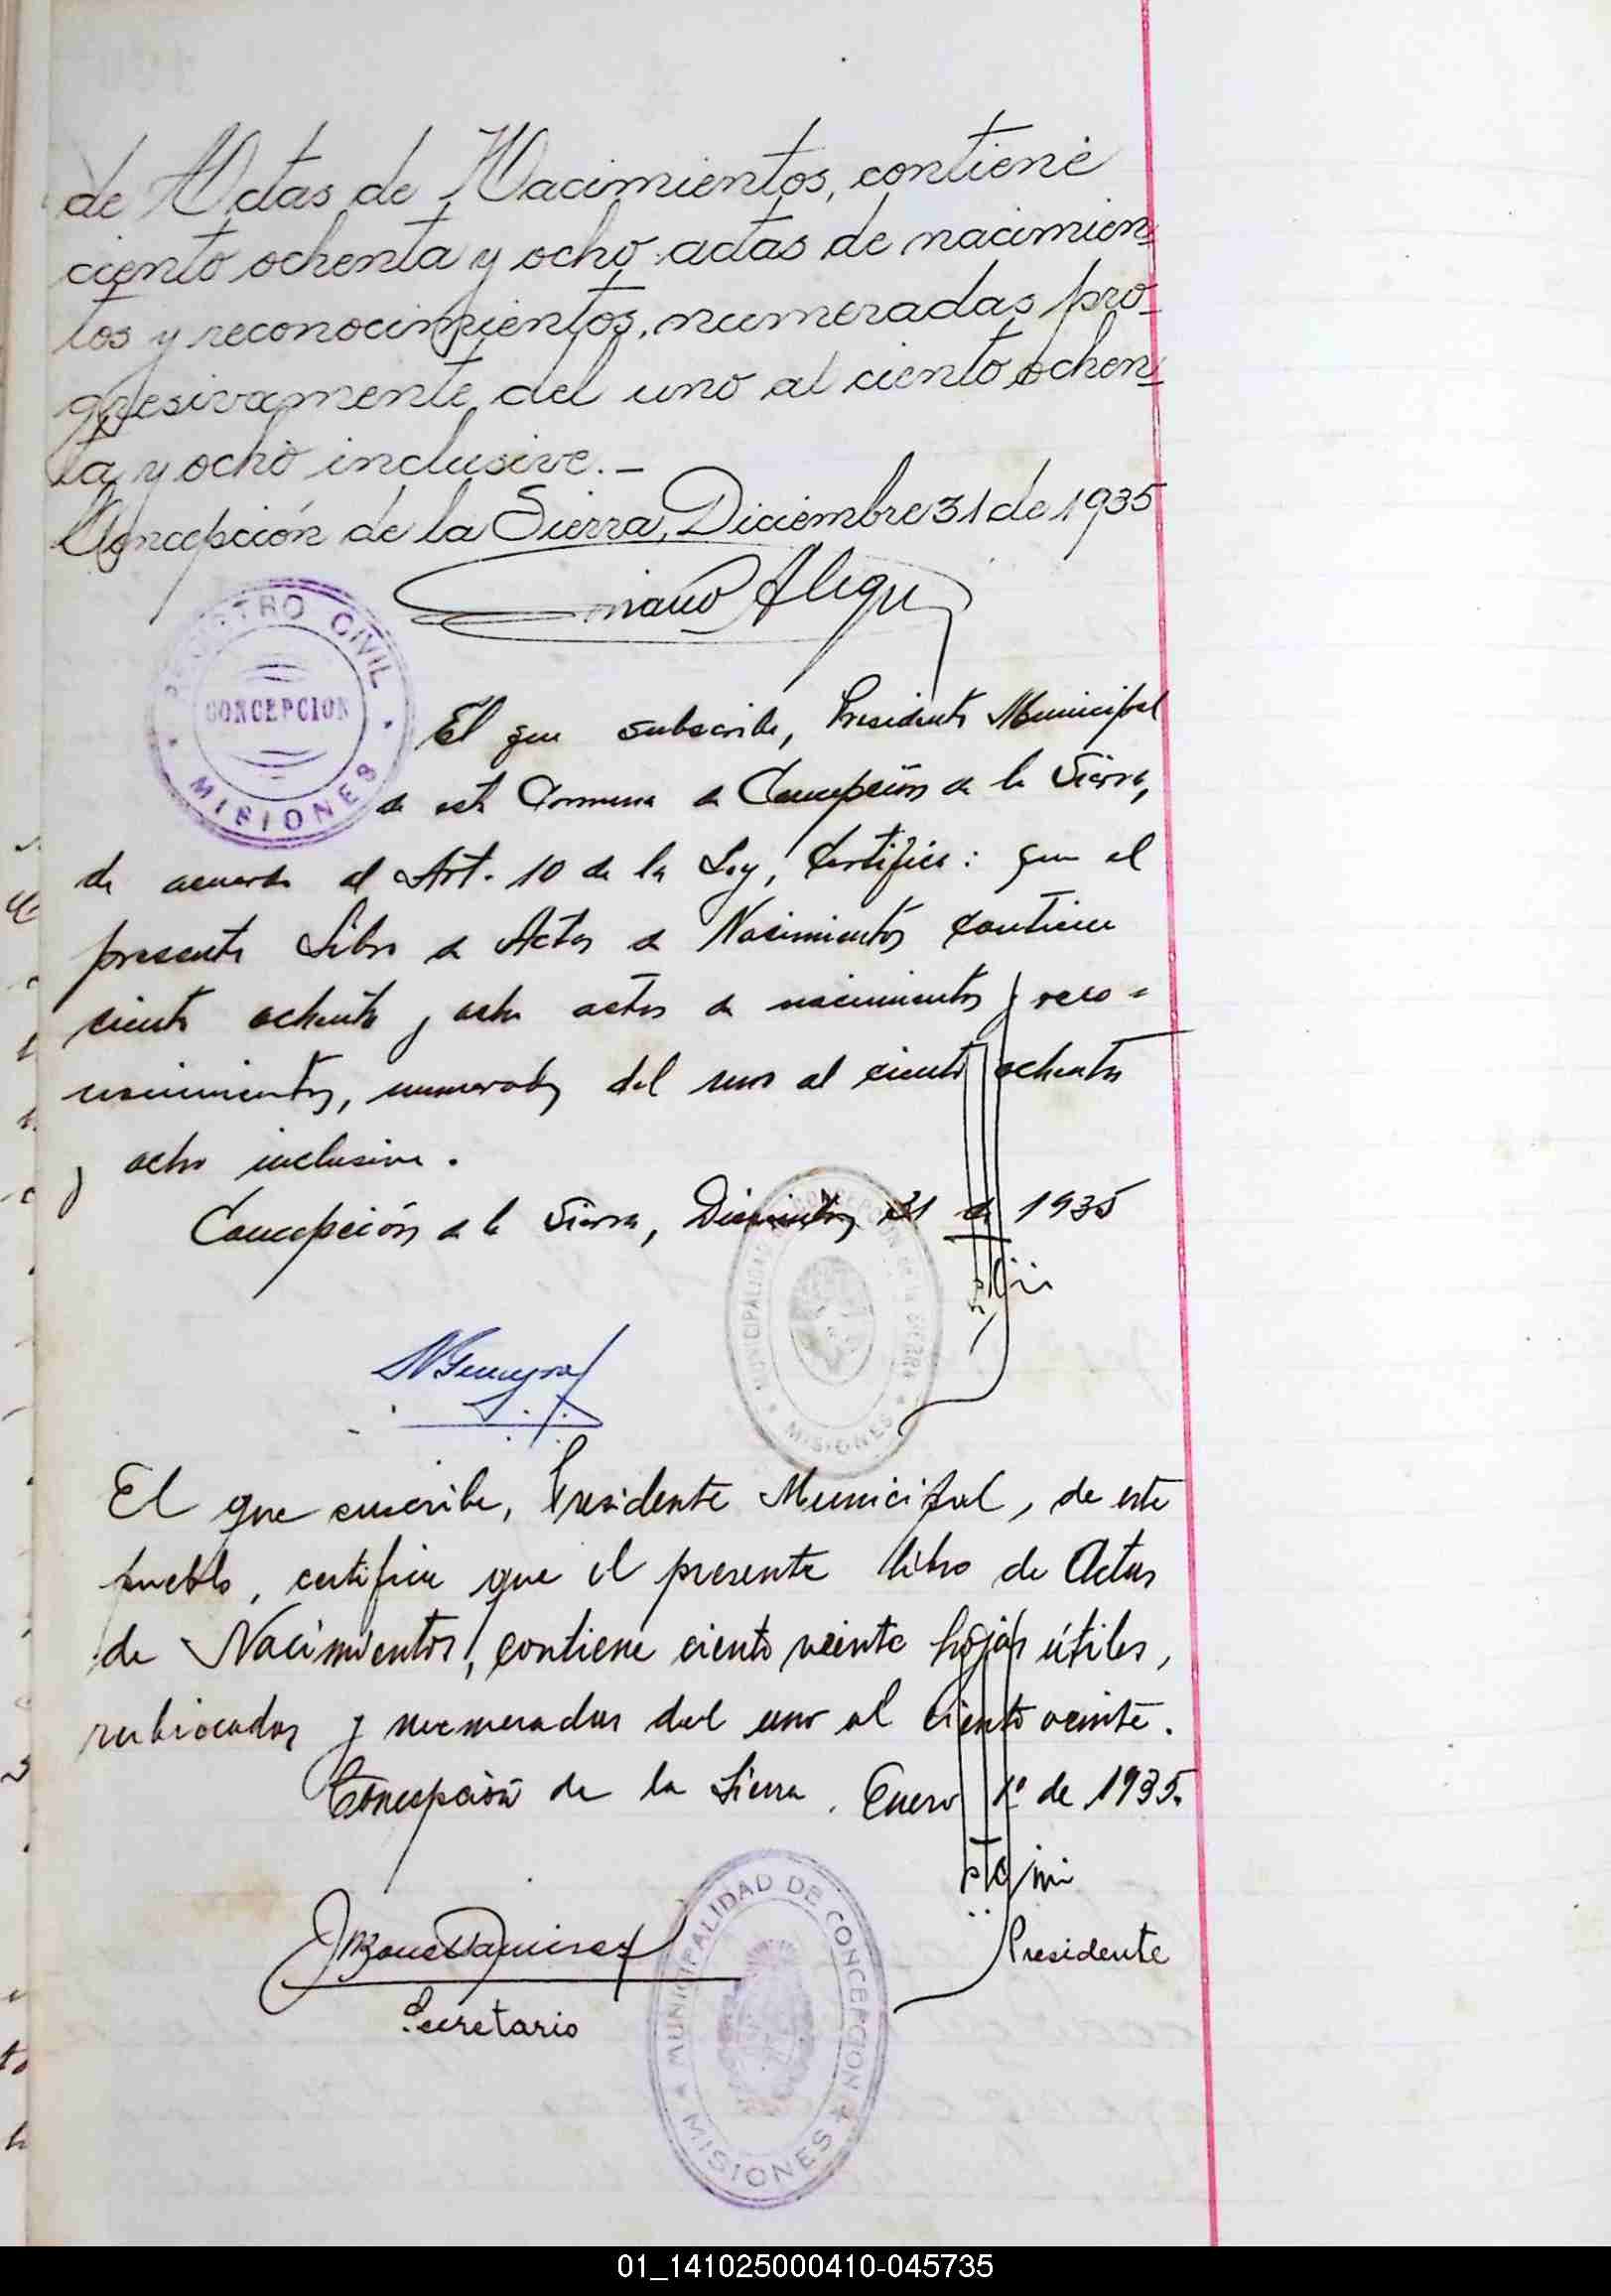 de Actas de Nacimientos, contiene
ciento ochenta y ocho actas de nacimien-
tos y reconocimientos, numeradas pro-
gresivamente del uno al ciento ochen-
ta y ocho inclusive.-
Concepción de la Sierra, Diciembre 31 de 1935
REGISTRO CIVIL
CONCEPCION
MISIONES
El que subscribe, Presidente Municipal
de esta Comuna de Concepción de la Sierra,
de acuerdo al Art. 10 de la Ley, Certifica: que el
presente Libro de Actas de Nacimientos contiene
ciento ochenta y ocho actas de nacimientos y reco=
nocimientos, numeradas del uno al ciento ochenta
y ocho inclusive.
Concepción de la Sierra, Diciembre 31 de 1935
MUNICIPALIDAD DE CONCEPCION DE LA SIERRA
MISIONES
El que suscribe, Presidente Municipal, de este
pueblo, certifica que el presente libro de Actas
de Nacimientos, contiene ciento veinte hojas útiles,
rubricadas y numeradas del uno al ciento veinte.
Concepción de la Sierra. Enero 1º de 1935.
Presidente
Secretario
MUNICIPALIDAD DE CONCEPCION
MISIONES
01_141025000410-045735